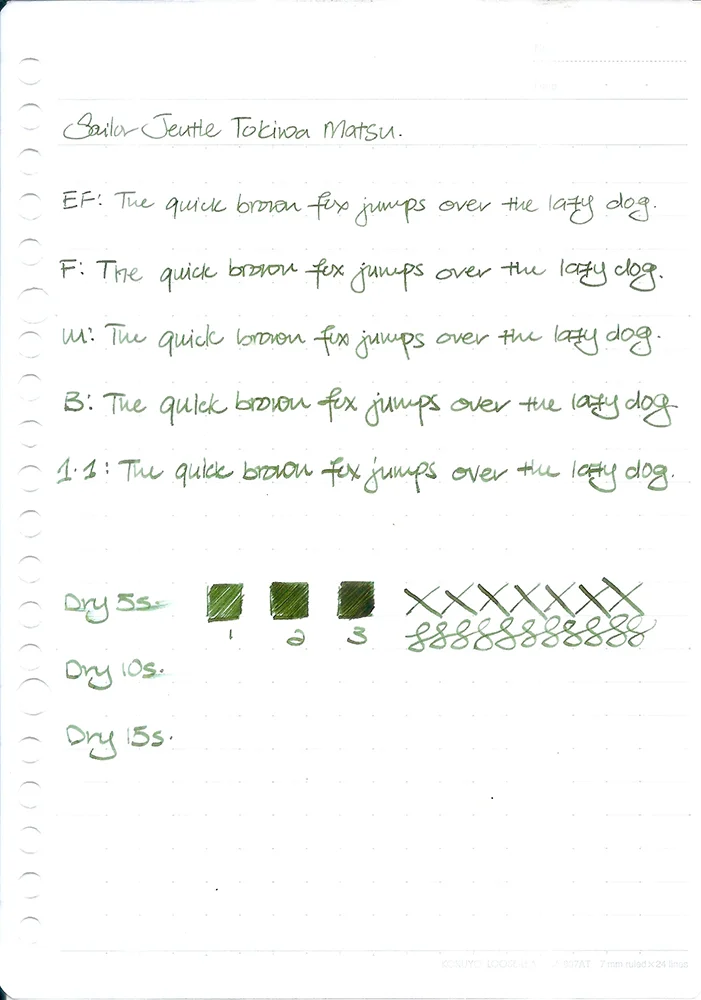 Sailor Jentle Tokiwa Matsu.
EF: The quick brown fox jumps over the lazy dog.
F: The quick brown fox jumps over the lazy dog.
M: The quick brown fox jumps over the lazy dog.
B: The quick brown fox jumps over the lazy dog
1.1: The quick brown fox jumps over the lazy dog.
Dry 5s.
1 2 3
Dry 10s.
Dry 15s.
KOKUYO 7 mm ruled × 24 lines